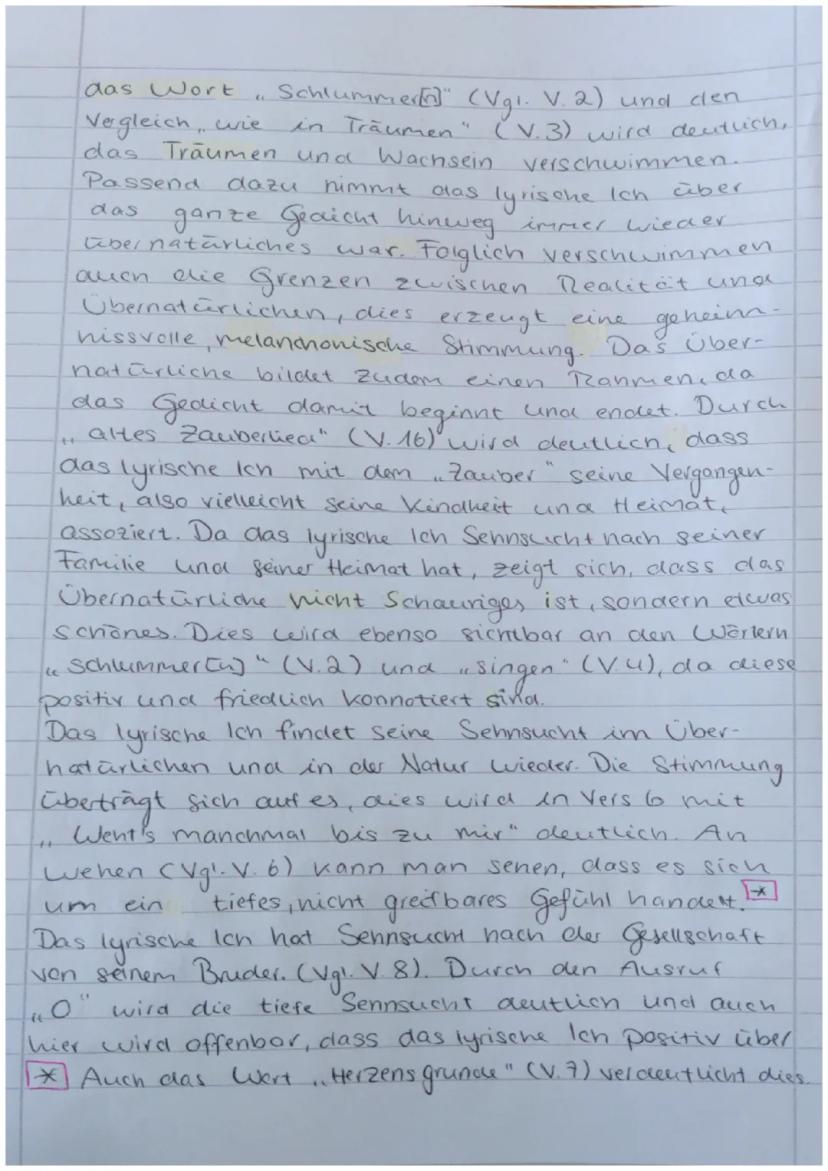 das Wort „Schlummer[n]" (Vgl. V. 2) und den
Vergleich „wie in Träumen" (V.3) wird deutlich,
das Träumen und Wachsein verschwimmen.
Passend dazu nimmt das lyrische Ich über
das ganze Gedicht hinweg immer wieder
übernatürliches war. Folglich verschwimmen
auch die Grenzen zwischen Realität und
Übernatürlichen, dies erzeugt eine geheim-
nissvolle, melanchonische Stimmung. Das Über-
natürliche bildet zudem einen Rahmen, da
das Gedicht damit beginnt und endet. Durch
„altes Zauberlied" (V. 16) wird deutlich, dass
das lyrische Ich mit dem „Zauber" seine Vergangen-
heit, also vielleicht seine Kindheit und Heimat,
assoziert. Da das lyrische Ich Sehnsucht nach seiner
Familie und seiner Heimat hat, zeigt sich, dass das
Übernatürliche nicht Schauriges ist, sondern etwas
schönes. Dies wird ebenso sichtbar an den Wörtern
„Schlummer[n]" (V.2) und „singen" (V.4), da diese
positiv und friedlich konnotiert sind.
Das lyrische Ich findet seine Sehnsucht im Über-
natürlichen und in der Natur wieder. Die Stimmung
überträgt sich auf es, dies wird in Vers 6 mit
„Weht's manchmal bis zu mir" deutlich. An
wehen (Vgl. V. 6) kann man sehen, dass es sich
um ein tiefes, nicht greifbares Gefühl handelt. *
Das lyrische Ich hat Sehnsucht nach der Gesellschaft
von seinem Bruder. (Vgl. V. 8). Durch den Ausruf
„O" wird die tiefe Sehnsucht deutlich und auch
hier wird offenbar, dass das lyrische Ich positiv über
* Auch das Wort „Herzensgrunde" (V. 7) verdeutlicht dies.